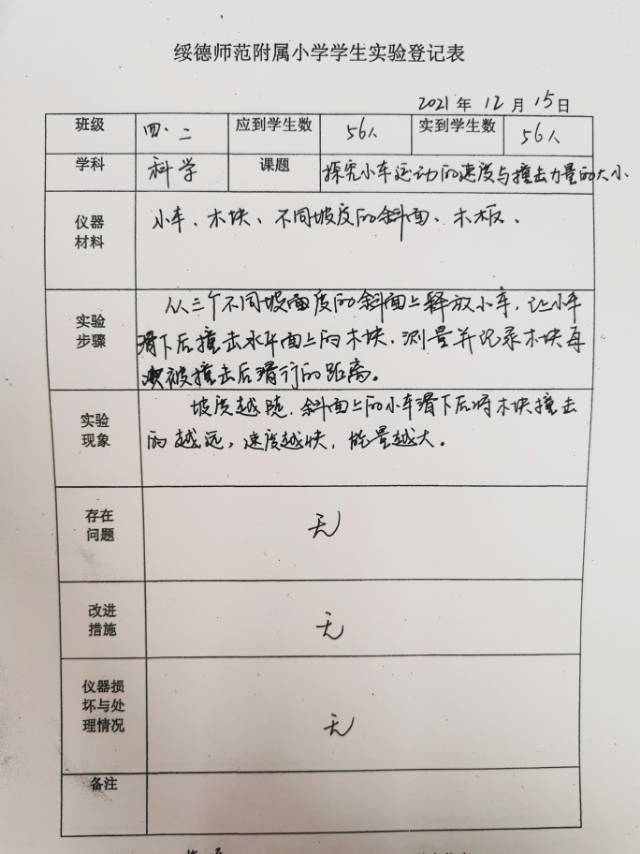 绥德师范附属小学学生实验登记表
2021年12月15日
班级 四.二 应到学生数 56人 实到学生数 56人
学科 科学 课题 探究小车运动的速度与撞击力量的大小
仪器材料 小车、木块、不同坡度的斜面、木板、
实验步骤 从三个不同坡面度的斜面上释放小车,让小车
滑下后撞击水平面上的木块,测量并记录木块
被撞击后滑行的距离。
实验现象 坡度越陡,斜面上的小车滑下后将木块撞击
的越远,速度越快,能量越大。
存在问题 无
改进措施 无
仪器损坏与处理情况 无
备注